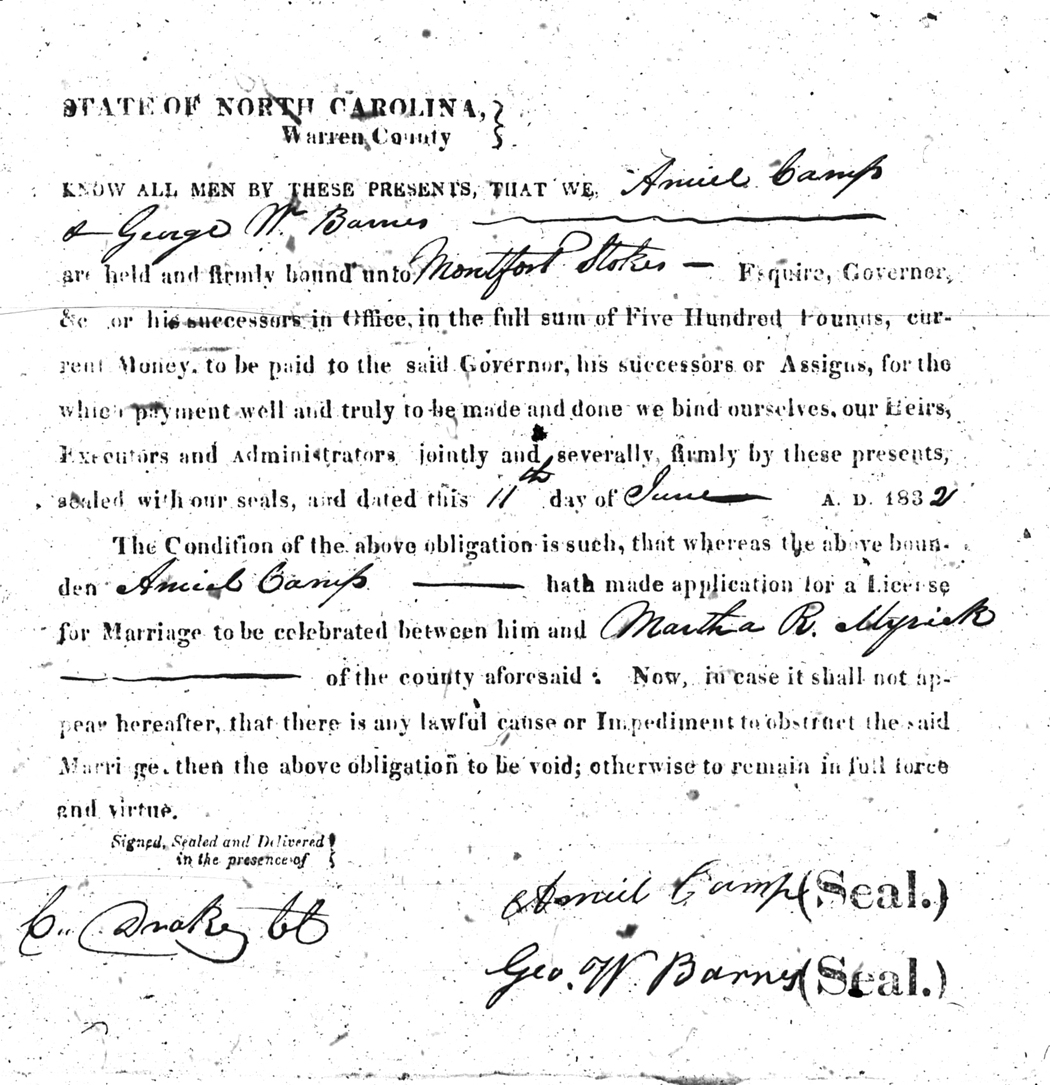 STATE OF NORTH CAROLINA,
Warren County
KNOW ALL MEN BY THESE PRESENTS, THAT WE, Amiel Camp
& George W. Barnes
are held and firmly bound unto Montfort Stokes — Esquire, Governor,
&c or his successors in Office, in the full sum of Five Hundred Pounds, cur-
rent Money, to be paid to the said Governor, his successors or Assigns, for the
which payment well and truly to be made and done we bind ourselves, our Heirs,
Executors and Administrators jointly and severally, firmly by these presents,
sealed with our seals, and dated this 11th day of June A. D. 1832
The Condition of the above obligation is such, that whereas the above boun-
den Amiel Camp hath made application for a License
for Marriage to be celebrated between him and Martha R. Myrick
of the county aforesaid : Now, in case it shall not ap-
pear hereafter, that there is any lawful cause or Impediment to obstruct the said
Marriage, then the above obligation to be void; otherwise to remain in full force
and virtue.
Signed, Sealed and Delivered
in the presence of
Amiel Camp (Seal.)
C. Drake
Geo. W Barnes (Seal.)